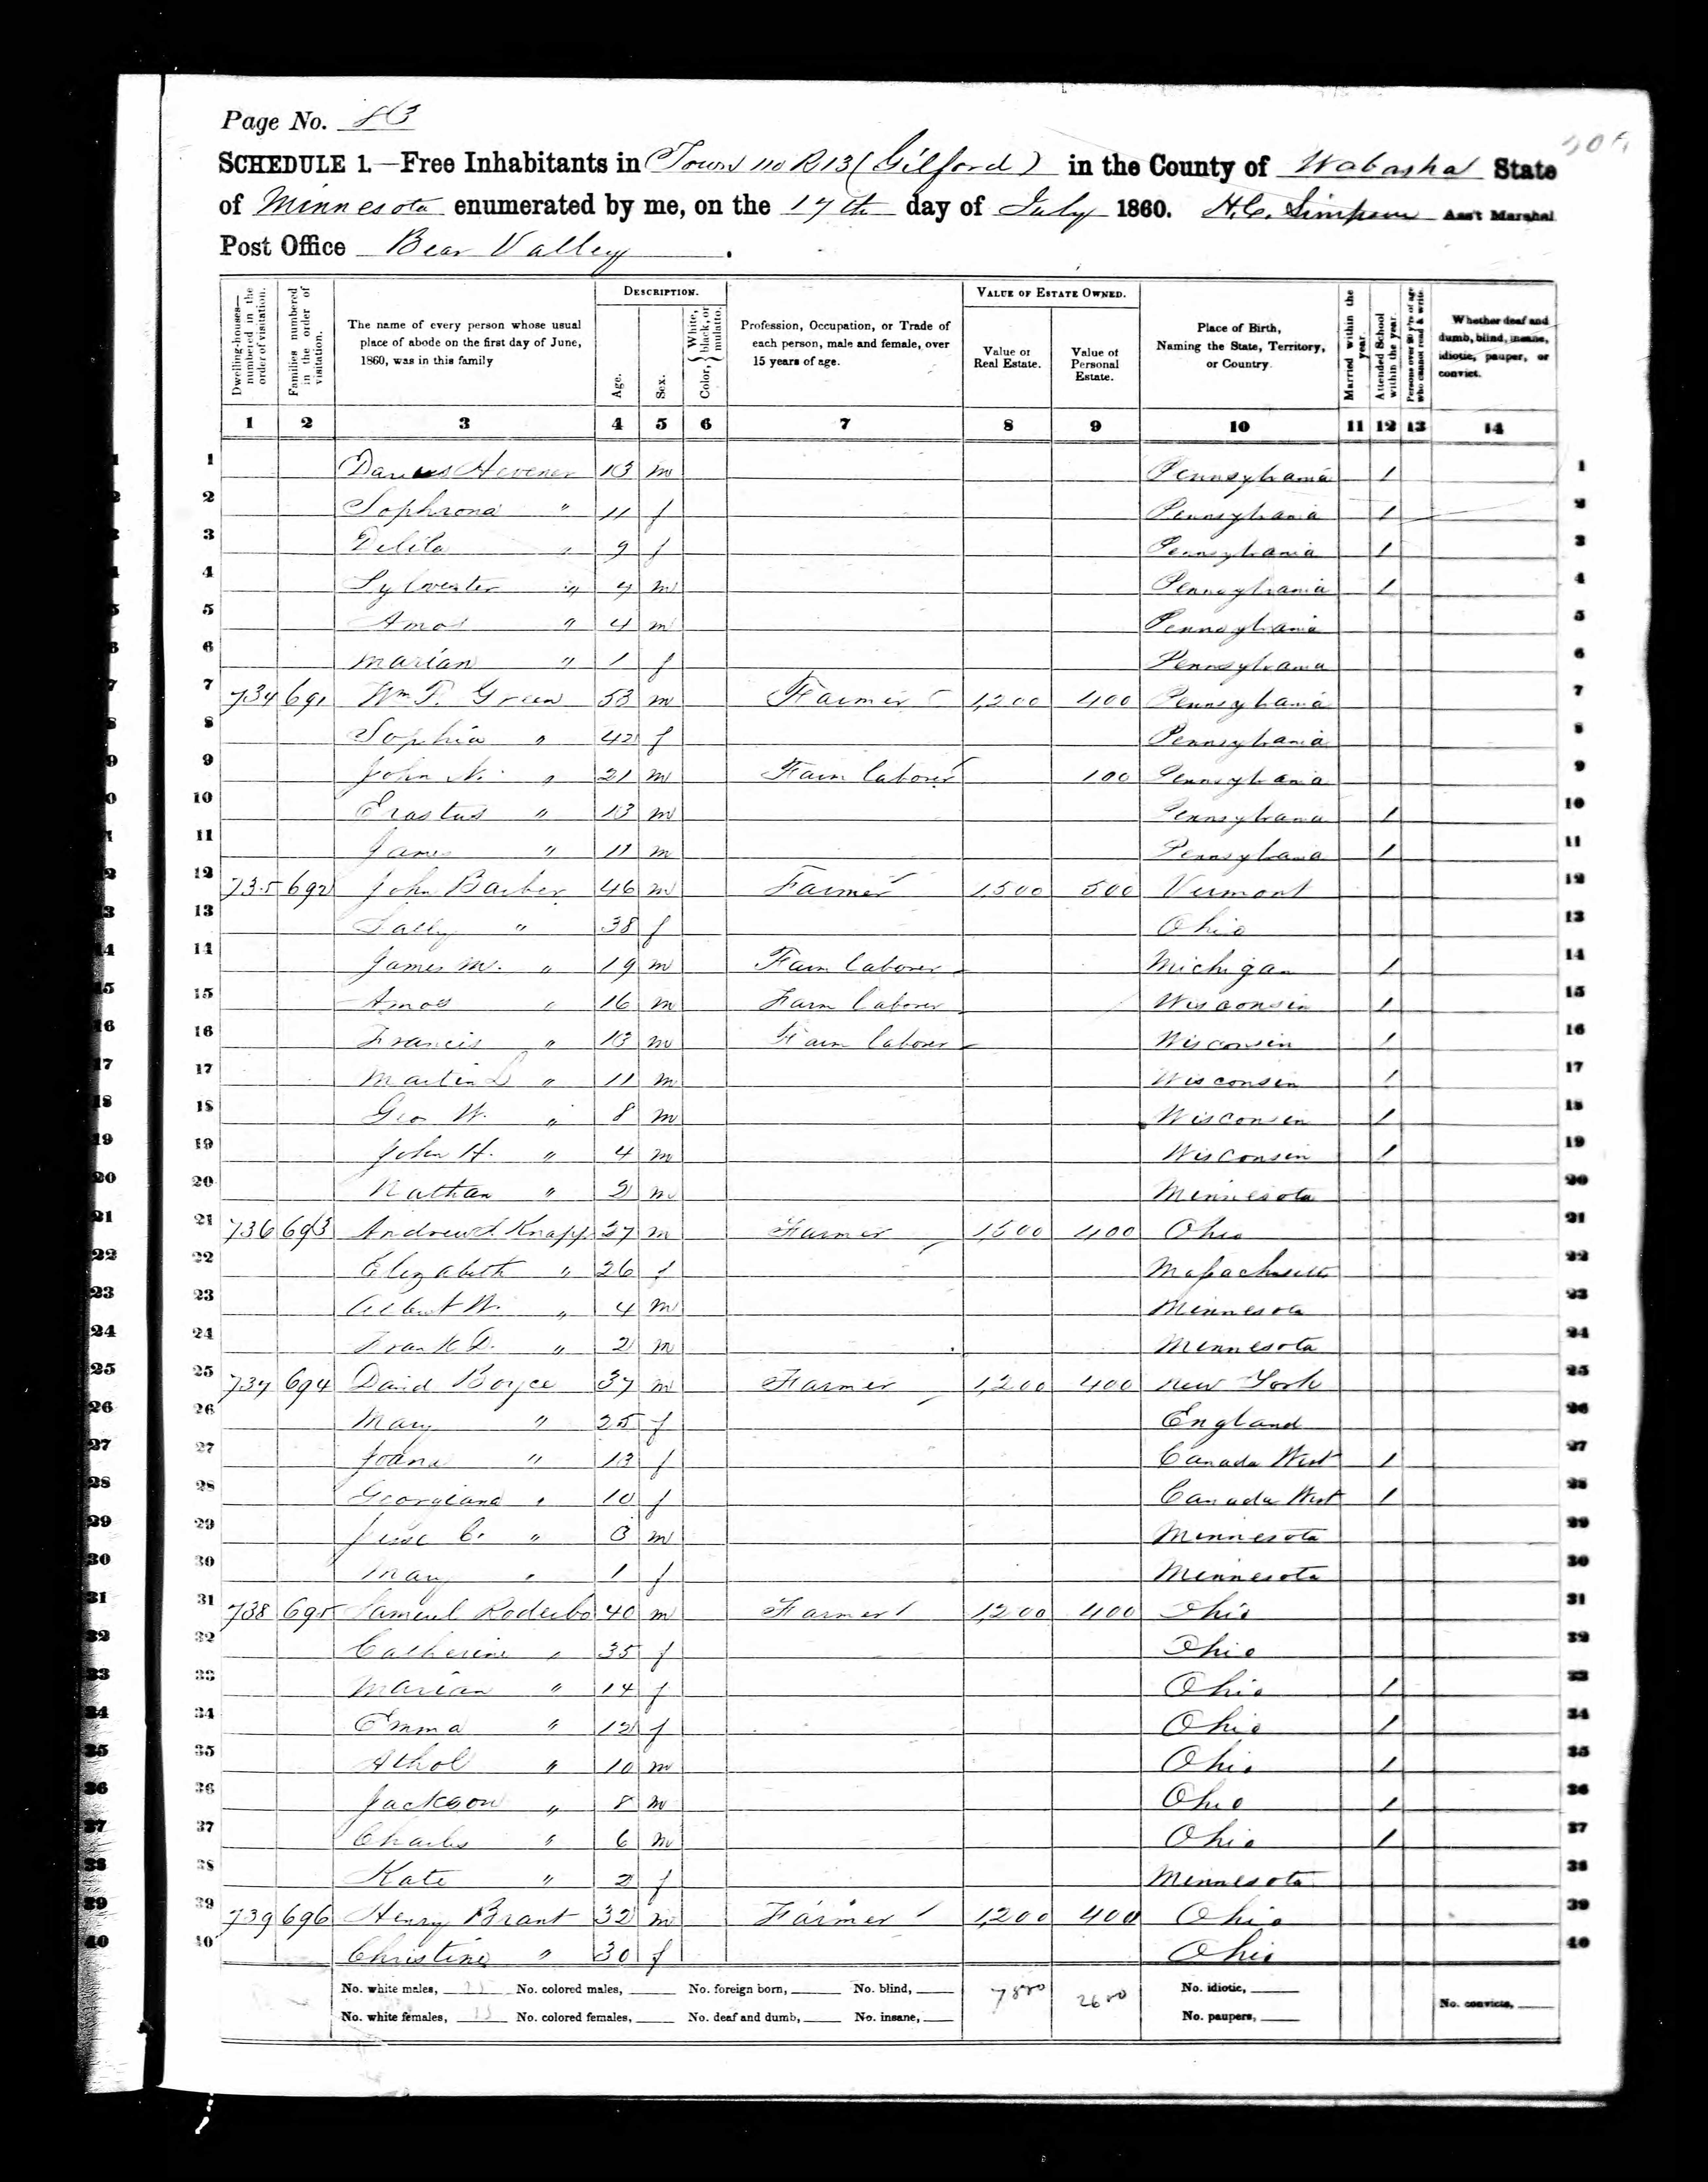 Page No. 83
SCHEDULE 1.—Free Inhabitants in Town 110 R 13 (Gilford) in the County of Wabasha State
of Minnesota enumerated by me, on the 17th day of July 1860. H.C. Simpson Ass't Marshal
Post Office Bear Valley.
Dwelling-houses—numbered in the order of visitation. Families numbered in the order of visitation. The name of every person whose usual place of abode on the first day of June, 1860, was in this family DESCRIPTION. Age. Sex. Color, { White, black, or mulatto. Profession, Occupation, or Trade of each person, male and female, over 15 years of age. VALUE OF ESTATE OWNED. Value of Real Estate. Value of Personal Estate. Place of Birth, Naming the State, Territory, or Country. Married within the year. Attended School within the year. Persons over 20 y'rs of age who cannot read & write. Whether deaf and dumb, blind, insane, idiotic, pauper, or convict.
1 2 3 4 5 6 7 8 9 10 11 12 13 14
1 Hevener 13 m Pennsylvania 1 1
2 Sophrona " 11 f Pennsylvania 1 2
3 Delila " 9 f Pennsylvania 1 3
4 Sylvester " 7 m Pennsylvania 1 4
5 Amos " 4 m Pennsylvania 5
6 Marian " 1 f Pennsylvania 6
7 734 691 Wm Green 53 m Farmer 1,200 400 Pennsylvania 7
8 Sophia " 42 f Pennsylvania 8
9 John N. " 21 m Farm laborer 100 Pennsylvania 9
10 Erastus " 13 m Pennsylvania 1 10
11 James " 11 m Pennsylvania 1 11
12 735 692 John Barber 46 m Farmer 1,500 500 Vermont 12
13 Sally " 38 f Ohio 13
14 James M. " 19 m Farm laborer Michigan 1 14
15 Amos " 16 m Farm laborer Wisconsin 1 15
16 Francis " 13 m Farm laborer Wisconsin 1 16
17 Martin " 11 m Wisconsin 1 17
18 Geo W. " 8 m Wisconsin 1 18
19 John H. " 4 m Wisconsin 1 19
20 Nathan " 2 m Minnesota 20
21 736 693 Andrew S. Knapp 37 m Farmer 1,500 400 Ohio 21
22 Elizabeth " 26 f Massachusetts 22
23 Albert W. " 4 m Minnesota 23
24 Frank D. " 2 m Minnesota 24
25 737 694 David Boyce 37 m Farmer 1,200 400 New York 25
26 Mary " 25 f England 26
27 Joana " 13 f Canada West 1 27
28 Georgiana " 10 f Canada West 1 28
29 Jesse C. " 3 m Minnesota 29
30 Mary " 1 f Minnesota 30
31 738 695 Samuel Roderbo 40 m Farmer 1,200 400 Ohio 31
32 Catherine " 35 f Ohio 32
33 Marian " 14 f Ohio 1 33
34 Emma " 12 f Ohio 1 34
35 Athol " 10 m Ohio 1 35
36 Jackson " 8 m Ohio 1 36
37 Charles " 6 m Ohio 1 37
38 Kate " 2 f Minnesota 38
39 739 696 Henry Brant 32 m Farmer 1,200 400 Ohio 39
40 Christine " 30 f Ohio 40
No. white males, No. colored males, No. foreign born, No. blind, 7800 2600 No. idiotic,
No. white females, No. colored females, No. deaf and dumb, No. insane, No. paupers, No. convicts,